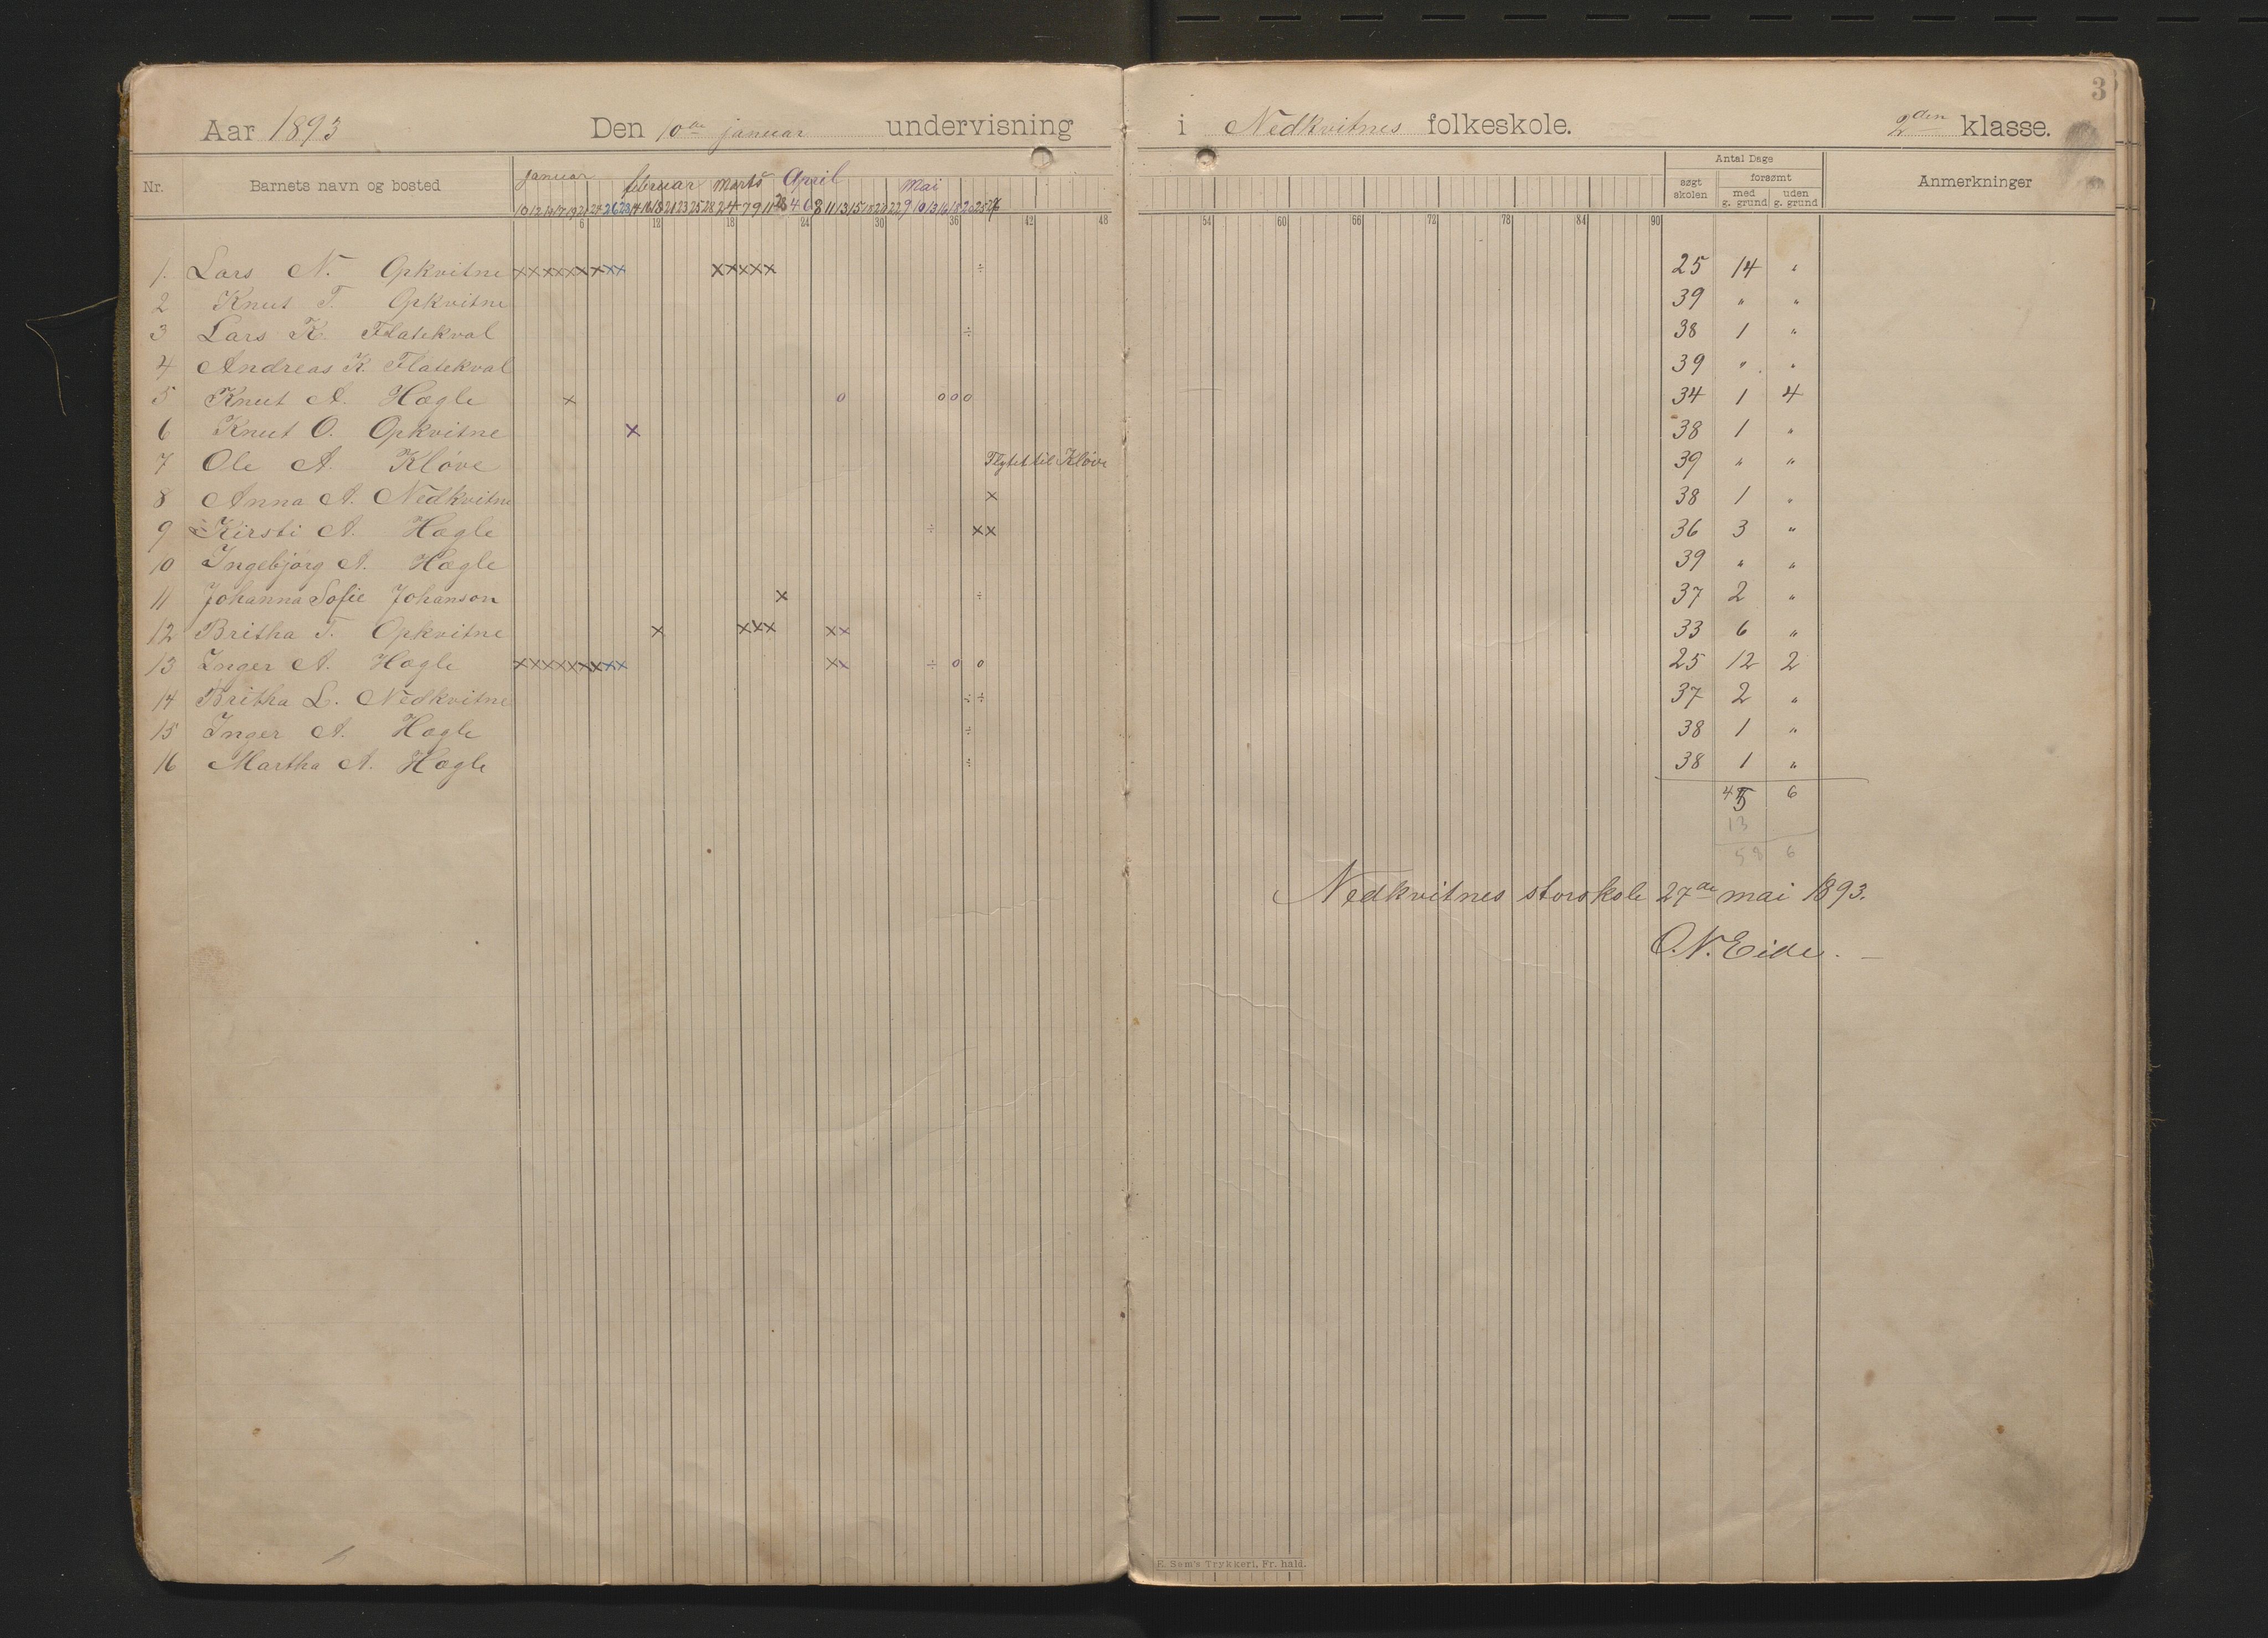 3
Aar 1893 Den 10de januar undervisning i Nedkvitnes folkeskole. 2den klasse.
Nr. Barnets navn og bosted januar februar Marts April Mai Antal Dage Anmerkninger
søgt skolen forsømt
med g. grund uden g. grund
6 12 18 24 30 36 42 48 54 60 66 72 78 84 90
1. Lars N. Opkvitne xxxxxxxxx xxxxx ÷ 25 14 "
2 Knut T. Opkvitne 39 " "
3 Lars K. Flatekval ÷ 38 1 "
4 Andreas K. Flatekval 39 " "
5 Knut A. Hægle x o o o o 34 1 4
6 Knut O. Opkvitne x 38 1 "
7 Ole A. Kløve Flyttet til Kløve 39 " "
8 Anna A. Nedkvitne x 38 1 "
9 Kirsti A. Hægle ÷ x x 36 3 "
10 Ingebjørg A. Hægle 39 " "
11 Johanna Sofie Johanson x ÷ 37 2 "
12 Britha T. Opkvitne x xxx xx 33 6 "
13 Inger A. Hægle xxxxxxxxx xx ÷ o o 25 12 2
14 Britha L. Nedkvitne ÷ ÷ 37 2 "
15 Inger A. Hægle ÷ 38 1 "
16 Martha A. Hægle ÷ 38 1 "
45 6
13
58 6
Nedkvitnes storskole 27de mai 1893.
O. N. Eide.
E. Sem's Trykkeri, Fr. hald.